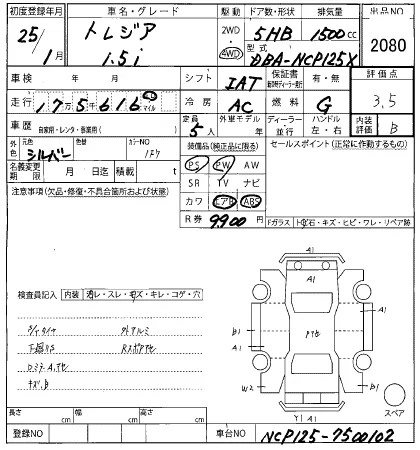 初度登録年月 車名・グレード 駆動 ドア数・形状 排気量 出品NO
25/1月 トレジア 1.5i 2WD・4WD 5HB 1500cc 2080
型式 DBA-NCP125X
車検 年 月 シフト IAT 保証書 有・無 評価点 3.5
走行 17万5千616 km マイル 冷房 AC 燃料 G
車歴 自家用・レンタ・事業用( ) 定員 5人 外車モデル 年 ディーラー・並行 ハンドル 左・右 内装評価 B
外色 元色 シルバー 色替 カラーNO 1F7 装備品(純正品に限る) セールスポイント(正常に作動するもの)
名義変更期限 月 日迄 積載 t PS PW AW
SR TV ナビ
カワ エアB ABS
注意事項(欠品・修復・不具合箇所および状態) R券 9900 Fガラス トビ石・キズ・ヒビ・ワレ・リペア跡
A1
A1
検査員記入 内装 汚レ・スレ・モゲ・キレ・コゲ・穴
外アルミ
B1 A1
下廻りS
キズ、B
W2 B1
スペア
Y1 A1
長さ cm 幅 cm 高さ cm
登録NO 車台NO NCP125-7500102